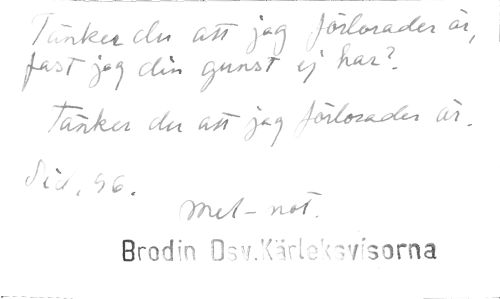 Tänker du att jag förlorader är,
fast jag din gunst ej har?
Tänker du att jag förlorader är.
Sid. 96.
Mel-not.
Brodin Osv.Kärleksvisorna